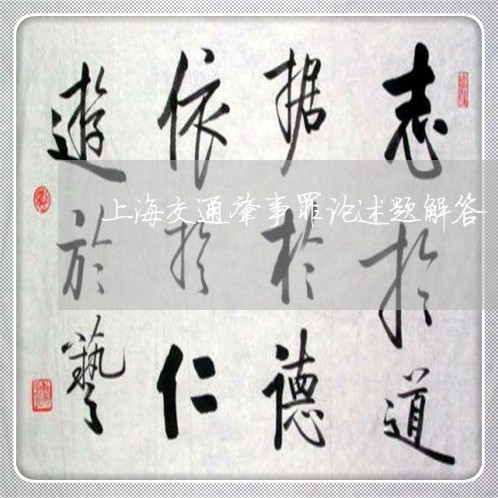 志於道
据於德
依於仁
遊於藝
上海交通肇事罪论述题解答